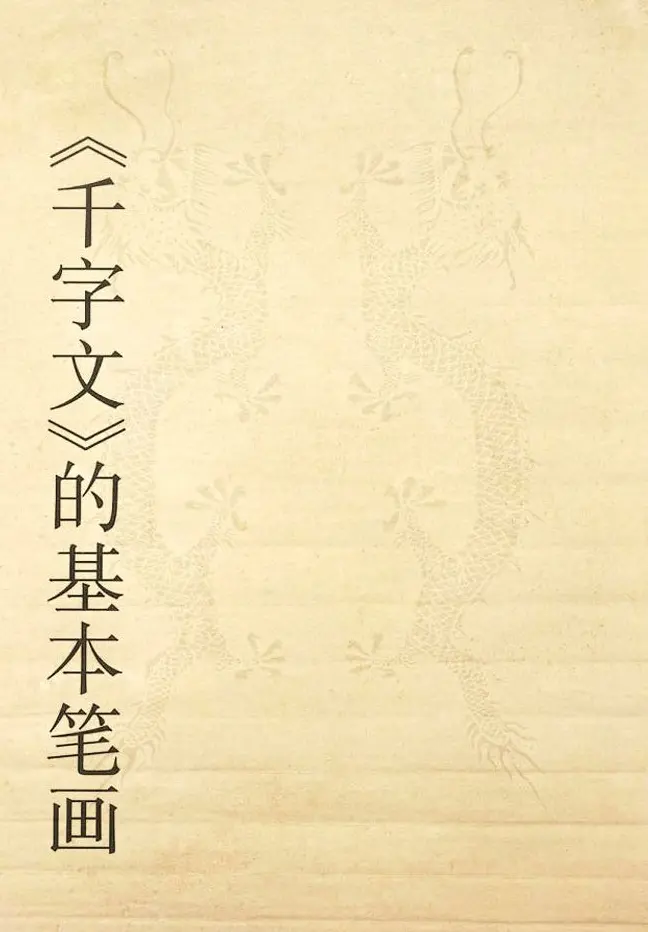 《千字文》的基本笔画